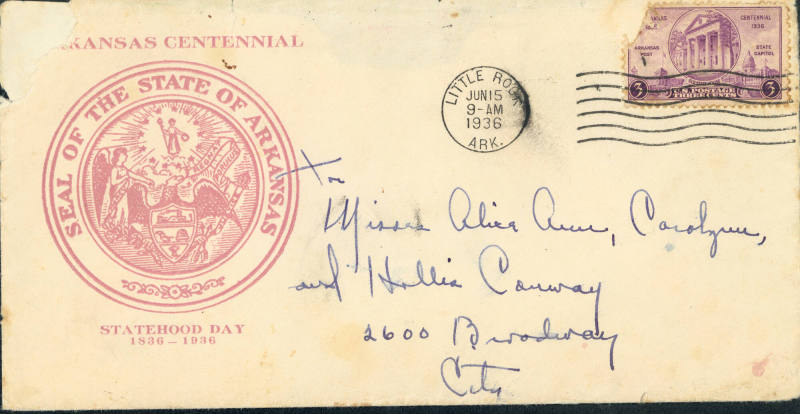 RKANSAS CENTENNIAL
SEAL OF THE STATE OF ARKANSAS
STATEHOOD DAY
1836 – 1936
LITTLE ROCK
JUN 15
9-AM
1936
ARK.
CENTENNIAL
1936
ARKANSAS
POST
STATE
CAPITOL
3
U.S. POSTAGE
THREE CENTS
3
To
Misses Alice Ann, Carolynn,
and Hollis Conway
2600 Broadway
City